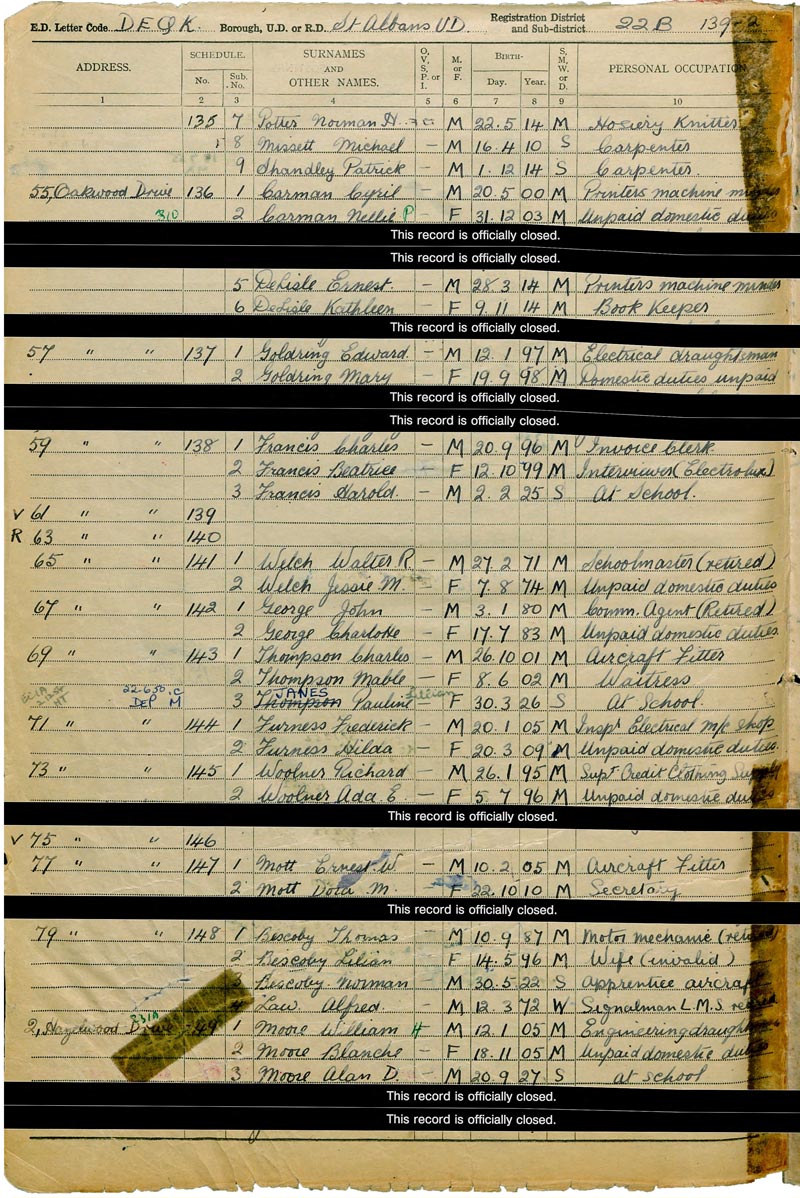 E.D. Letter Code DEQK. Borough, U.D. or R.D. St Albans UD Registration District and Sub-district 22B 139-2
ADDRESS. SCHEDULE. No. Sub. No. SURNAMES AND OTHER NAMES. O, V, S, P. or I. M. or F. BIRTH— Day. Year. S, M, W, or D. PERSONAL OCCUPATION
1 2 3 4 5 6 7 8 9 10
135 7 Potter Norman H. M 22.5 14 M Hosiery Knitter
8 Missett Michael — M 16.4 10 S Carpenter
9 Shandley Patrick — M 1.12 14 S Carpenter.
55, Oakwood Drive 136 1 Carman Cyril — M 20.5 00 M Printers machine
310 2 Carman Nellie P — F 31.12 03 M Unpaid domestic duties
This record is officially closed.
This record is officially closed.
5 DeLisle Ernest. — M 28.3 14 M Printers machine minder
6 DeLisle Kathleen — F 9.11 14 M Book Keeper
This record is officially closed.
57 " " 137 1 Goldring Edward — M 12.1 97 M Electrical draughtsman
2 Goldring Mary — F 19.9 98 M Domestic duties unpaid
This record is officially closed.
This record is officially closed.
59 " " 138 1 Francis Charles — M 20.9 96 M Invoice Clerk
2 Francis Beatrice — F 12.10 99 M Interviewer (Electrolux)
3 Francis Harold. — M 2.2 25 S At School.
V 61 " " 139
R 63 " " 140
65 " " 141 1 Welch Walter R. — M 27.2 71 M Schoolmaster (retired)
2 Welch Jessie M. — F 7.8 74 M Unpaid domestic duties
67 " " 142 1 George John — M 3.1 80 M Comm. Agent (Retired)
2 George Charlotte — F 17.7 83 M Unpaid domestic duties
69 " " 143 1 Thompson Charles — M 26.10 01 M Aircraft Fitter
2 Thompson Mable — F 8.6 02 M Waitress
22.6.50. C JANES Lilian
DEP M 3 Thompson Pauline — F 30.3 26 S At School.
71 " " 144 1 Furness Frederick — M 20.1 05 M Inspr Electrical m/c shop
2 Furness Hilda — F 20.3 09 M Unpaid domestic duties.
73 " " 145 1 Woolner Richard — M 26.1 95 M Supt Credit Clothing Supply
2 Woolner Ada E. — F 5.7 96 M Unpaid domestic duties
This record is officially closed.
V 75 " " 146
77 " " 147 1 Mott Ernest W. — M 10.2 05 M Aircraft Fitter
2 Mott Dora M. F 22.10 10 M Secretary
This record is officially closed.
79 " " 148 1 Bescoby Thomas — M 10.9 87 M Motor mechanic (retired)
2 Bescoby Lilian — F 14.5 96 M Wife (invalid)
3 Bescoby Norman — M 30.5 22 S Apprentice aircraft
4 Law Alfred. — M 12.3 72 W Signalman L.M.S. retired
2, Hazelwood Drive 149 1 Moore William H — M 12.1 05 M Engineering
2 Moore Blanche — F 18.11 05 M Unpaid domestic duties
3 Moore Alan D. — M 20.9 27 S at school
This record is officially closed.
This record is officially closed.